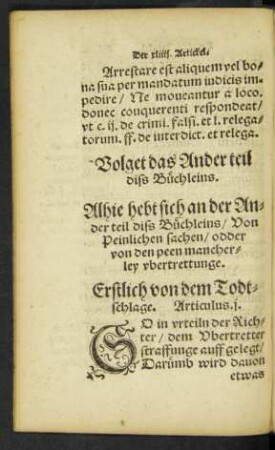 Der xliiij. Artickel.
Arrestare est aliquem vel bo-
na sua per mandatum iudicis im-
pedire/ Ne moueantur a loco.
donec conquerenti respondeat/
vt c. ij. de crimi. falsi. et l. relega-
torum. ff. de interdict. et relega.
Volget das Ander teil
diss Büchleins.
Alhie hebt sich an der An-
der teil diss Büchleins/ Von
Peinlichen sachen/ odder
von den peen mancher-
ley vbertrettunge.
Erstlich von dem Todt-
schlage. Articulus.j.
SO in vrteiln der Rich-
ter/ dem Vbertretter
straffunge auff gelegt/
Darümb wird dauon
etwas